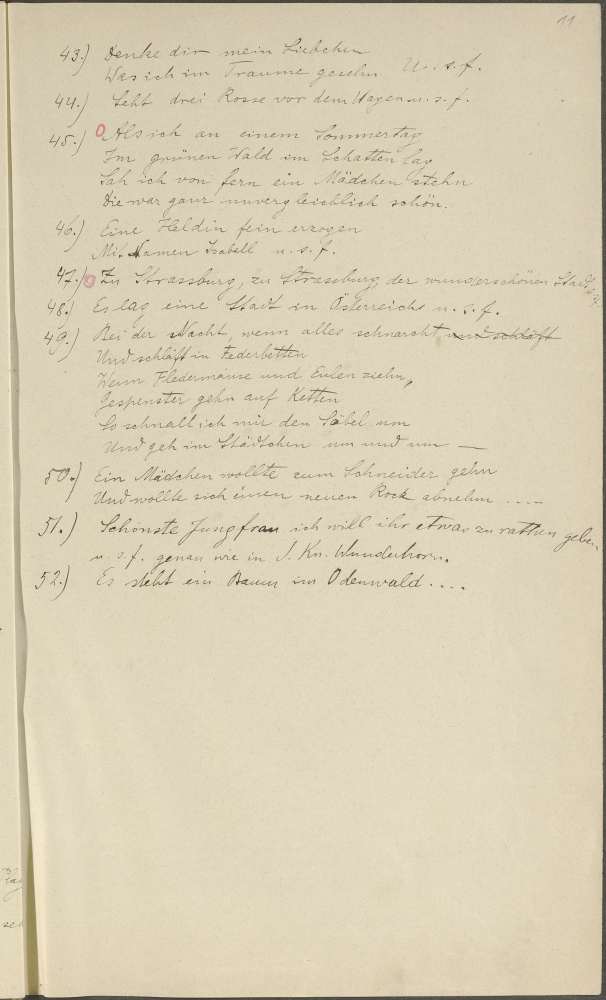 11
43.) Denke dir mein Liebchen
Was ich im Traume gesehn U. s. f.
44.) Seht drei Rosse vor dem Wagen u. s. f.
45.) Als ich an einem Sommertag
Im grünen Wald im Schatten lag
Sah ich von fern ein Mädchen stehn
Die war ganz unvergleichlich schön.
46.) Eine Heldin fein erzogen
Mit Namen Isabell u. s. f.
47.) Zu Strassburg, zu Strassburg, der wunderschönen Stadt
48.) Es lag eine Stadt in Österreich u. s. f.
49.) Bei der Nacht, wenn alles schnarcht und schläft
Und schläft in Federbetten
Wenn Fledermäuse und Eulen ziehn,
Gespenster gehn auf Ketten
So schnall ich mir den Säbel um
Und geh im Städtchen um und um —
50.) Ein Mädchen wollte zum Schneider gehn
Und wollte sich einen neuen Rock abnehm ....
51.) Schönste Jungfrau ich will ihr etwas zu rathen geben
u. s. f. genau wie in d. Kn. Wunderhorn.
52.) Es steht ein Baum im Odenwald ....